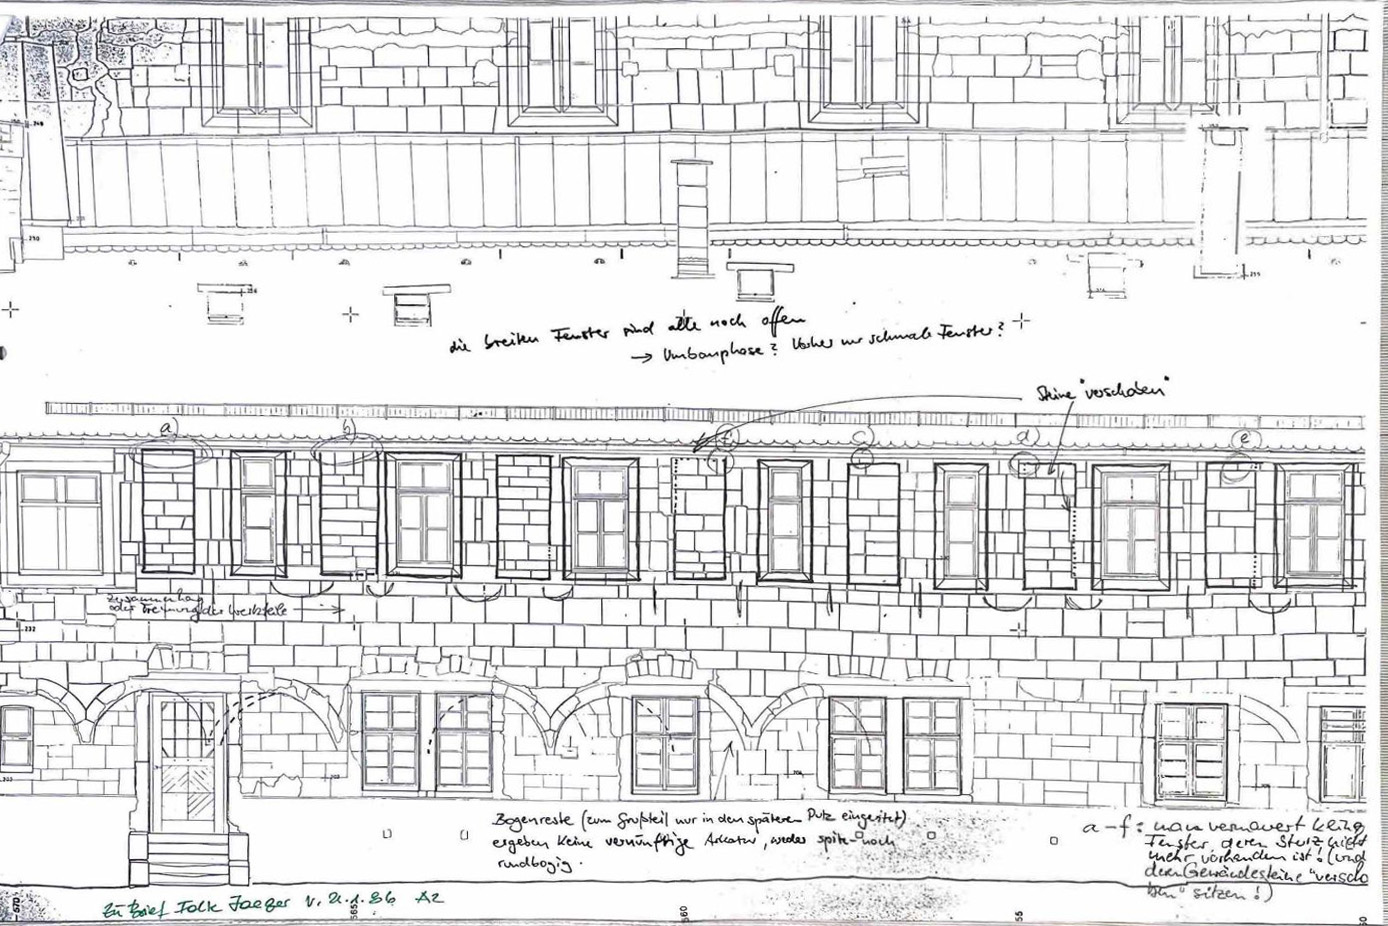 die breiten Fenster sind alle noch offen
→ Umbauphase? Vorher nur schmale Fenster?
Steine "verschoben"
a)
b)
f)
c)
d)
e)
Zusammenhang
oder Trennung der Werksteile →
232
Bogenreste (zum Großteil nur in den späteren Putz eingeritzt)
ergeben keine vernünftige Arkatur, weder spitz- noch
rundbogig.
a-f: man vermauert kleine
Fenster, deren Sturz nicht
mehr vorhanden ist! (und
deren Gewändesteine "verscho
ben" sitzen!)
Zu Brief Falk Jaeger v. 21.1.86 A2
570
565
560
55